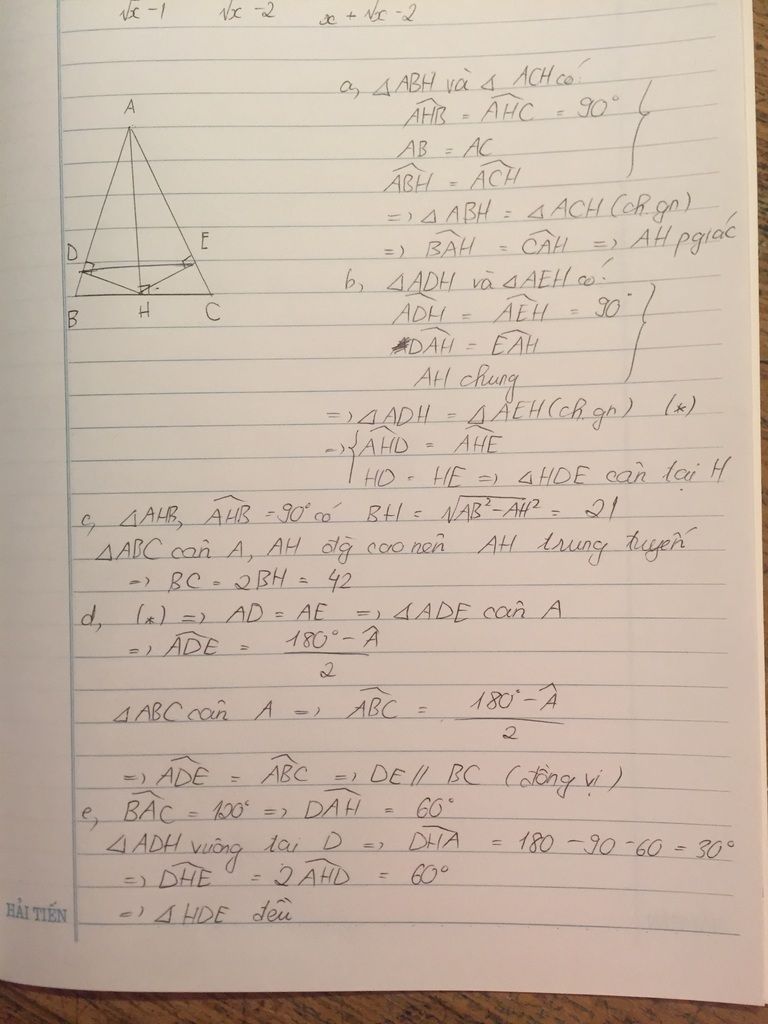 √x - 1 √x - 2 x + √x - 2
a, △ABH và △ ACH có:
AHB = AHC = 90°
AB = AC
ABH = ACH
=> △ ABH = △ ACH (ch.gn)
=> BAH = CAH => AH pgiác
b, △ADH và △AEH có:
ADH = AEH = 90°
DAH = EAH
AH chung
=> △ADH = △AEH (ch.gn) (*)
=> { AHD = AHE
HD = HE => △HDE cân tại H
c, △AHB, AHB = 90° có BH = √AB² - AH² = 21
△ABC cân A, AH đg cao nên AH trung tuyến
=> BC = 2BH = 42
d, (*) => AD = AE => △ADE cân A
=> ADE = 180° - Â / 2
△ABC cân A => ABC = 180° - Â / 2
=> ADE = ABC => DE // BC (đồng vị)
e, BAC = 120° => DAH = 60°
△ADH vuông tại D => DHA = 180 - 90 - 60 = 30°
=> DHE = 2AHD = 60°
=> △ HDE đều
A
D
E
B
H
C
HẢI TIẾN